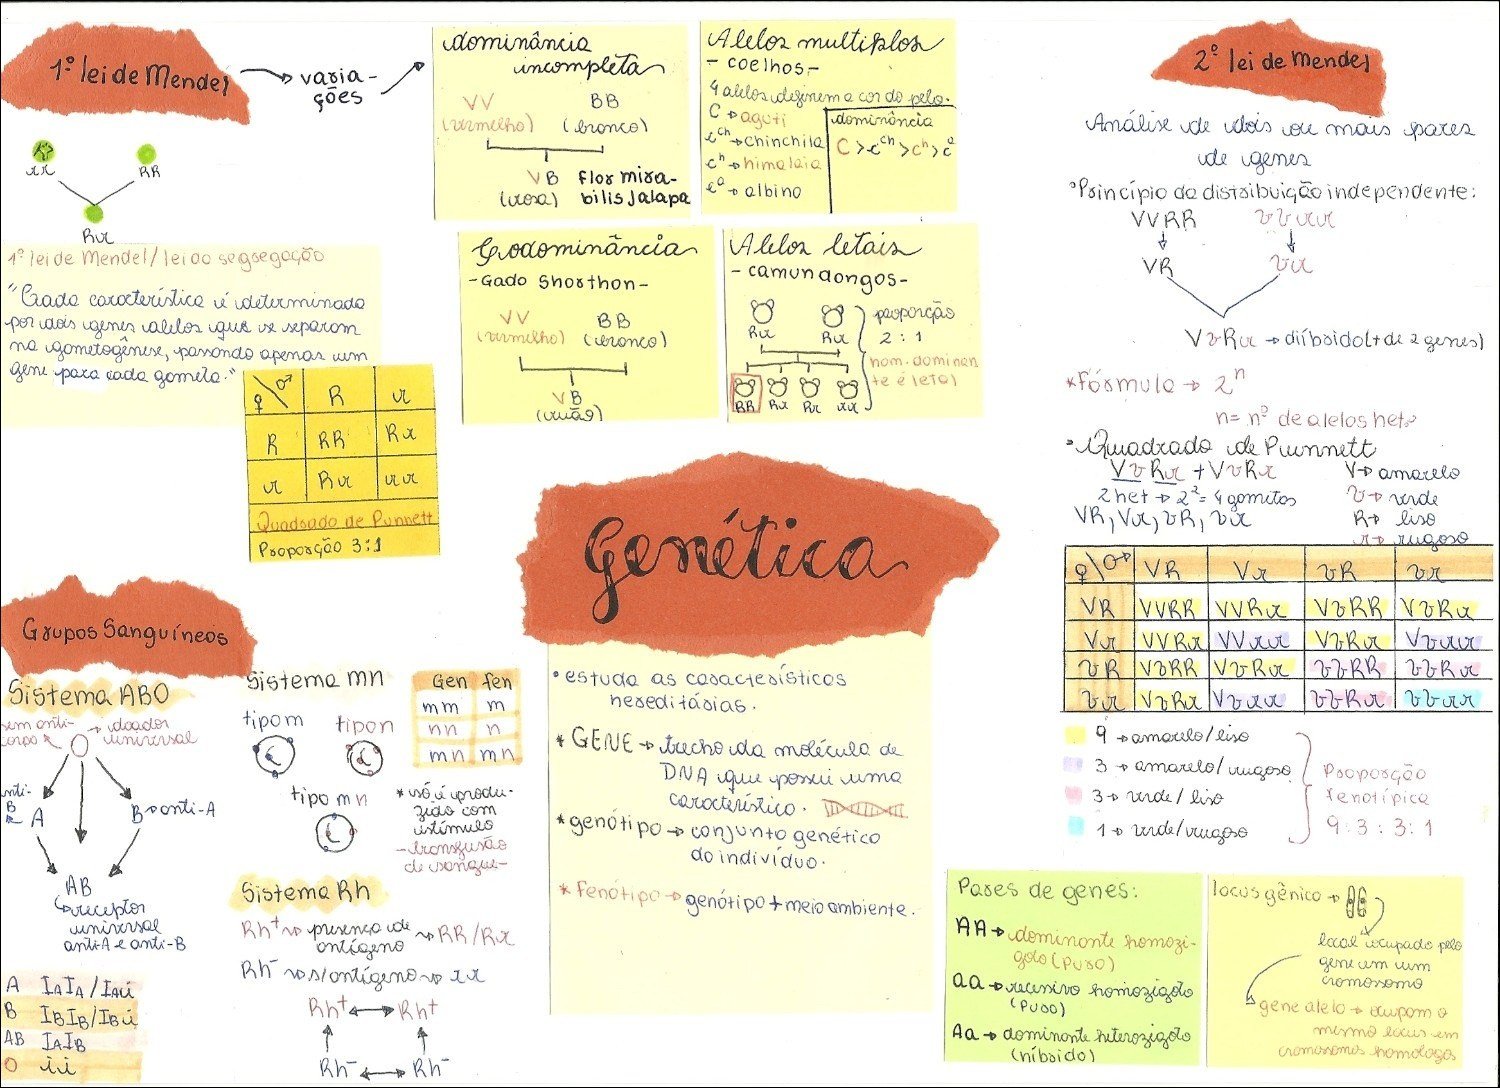 1º lei de Mendel
varia-
ções
dominância
incompleta
VV
BB
(vermelho)
(branco)
VB
(rosa)
Flor mira-
bilis Jalapa
Alelos multiplos
- coelhos -
4 alelos definem a cor do pelo.
C → aguti
c^ch → chinchila
c^h → himalaia
c^a → albino
dominância
C > c^ch > c^h > c^a
rr
RR
Rr
1º lei de Mendel / lei da segregação
"Cada característica é determinada
por dois genes alelos que se separam
na gametogênese, passando apenas um
gene para cada gameta."
♀ \ ♂ R r
R RR Rr
r Rr rr
Quadrado de Punnett
Proporção 3:1
Codominância
- Gado Shorthon -
VV
BB
(vermelho)
(branco)
VB
(ruão)
Alelos letais
- camundongos -
Rr
Rr
RR Rr Rr rr
proporção
2 : 1
hom. dominan
te é letal
2º lei de Mendel
Análise de dois ou mais pares
de genes
• Princípio da distribuição independente:
VVRR vvrr
VR vr
VvRr → diíbrido(+ de 2 genes)
* Fórmula → 2^n
n = nº de alelos hete
• Quadrado de Punnett
VvRr + VvRr
2 het → 2² = 4 gametas
VR, Vr, vR, vr
V → amarelo
v → verde
R → liso
r → rugoso
♀ \ ♂ VR Vr vR vr
VR VVRR VVRr VvRR VvRr
Vr VVRr VVrr VvRr Vvrr
vR VvRR VvRr vvRR vvRr
vr VvRr Vvrr vvRr vvrr
9 → amarelo/liso
3 → amarelo/rugoso
3 → verde/liso
1 → verde/rugoso
Proporção
fenotípica
9 : 3 : 3 : 1
Genética
• estuda as características
hereditárias.
* GENE → trecho da molécula de
DNA que possui uma
característica.
* genótipo → conjunto genético
do indivíduo.
* Fenótipo → genótipo + meio ambiente.
Grupos Sanguíneos
Sistema ABO
sem anti-
corpo
O
→ doador
universal
anti-
B
A
B → anti-A
AB
receptor
universal
anti-A e anti-B
A IAIA / IAi
B IBIB / IBi
AB IAIB
O ii
Sistema mn
tipo m
tipo n
tipo mn
Gen fen
mm m
nn n
mn mn
* só é produ-
zido com
estímulo
- transfusão
de sangue -
Sistema Rh
Rh⁺ → presença de
antígeno → RR/Rr
Rh⁻ → s/antígeno → rr
Rh⁺ ↔ Rh⁺
Rh⁻ ↔ Rh⁻
Pares de genes:
AA → dominante homozi-
goto (puro)
aa → recessivo homozigoto
(puro)
Aa → dominante heterozigoto
(híbrido)
locus gênico →
local ocupado pelo
gene em um
cromossomo
gene alelo → ocupam o
mesmo locus em
cromossomos homologos